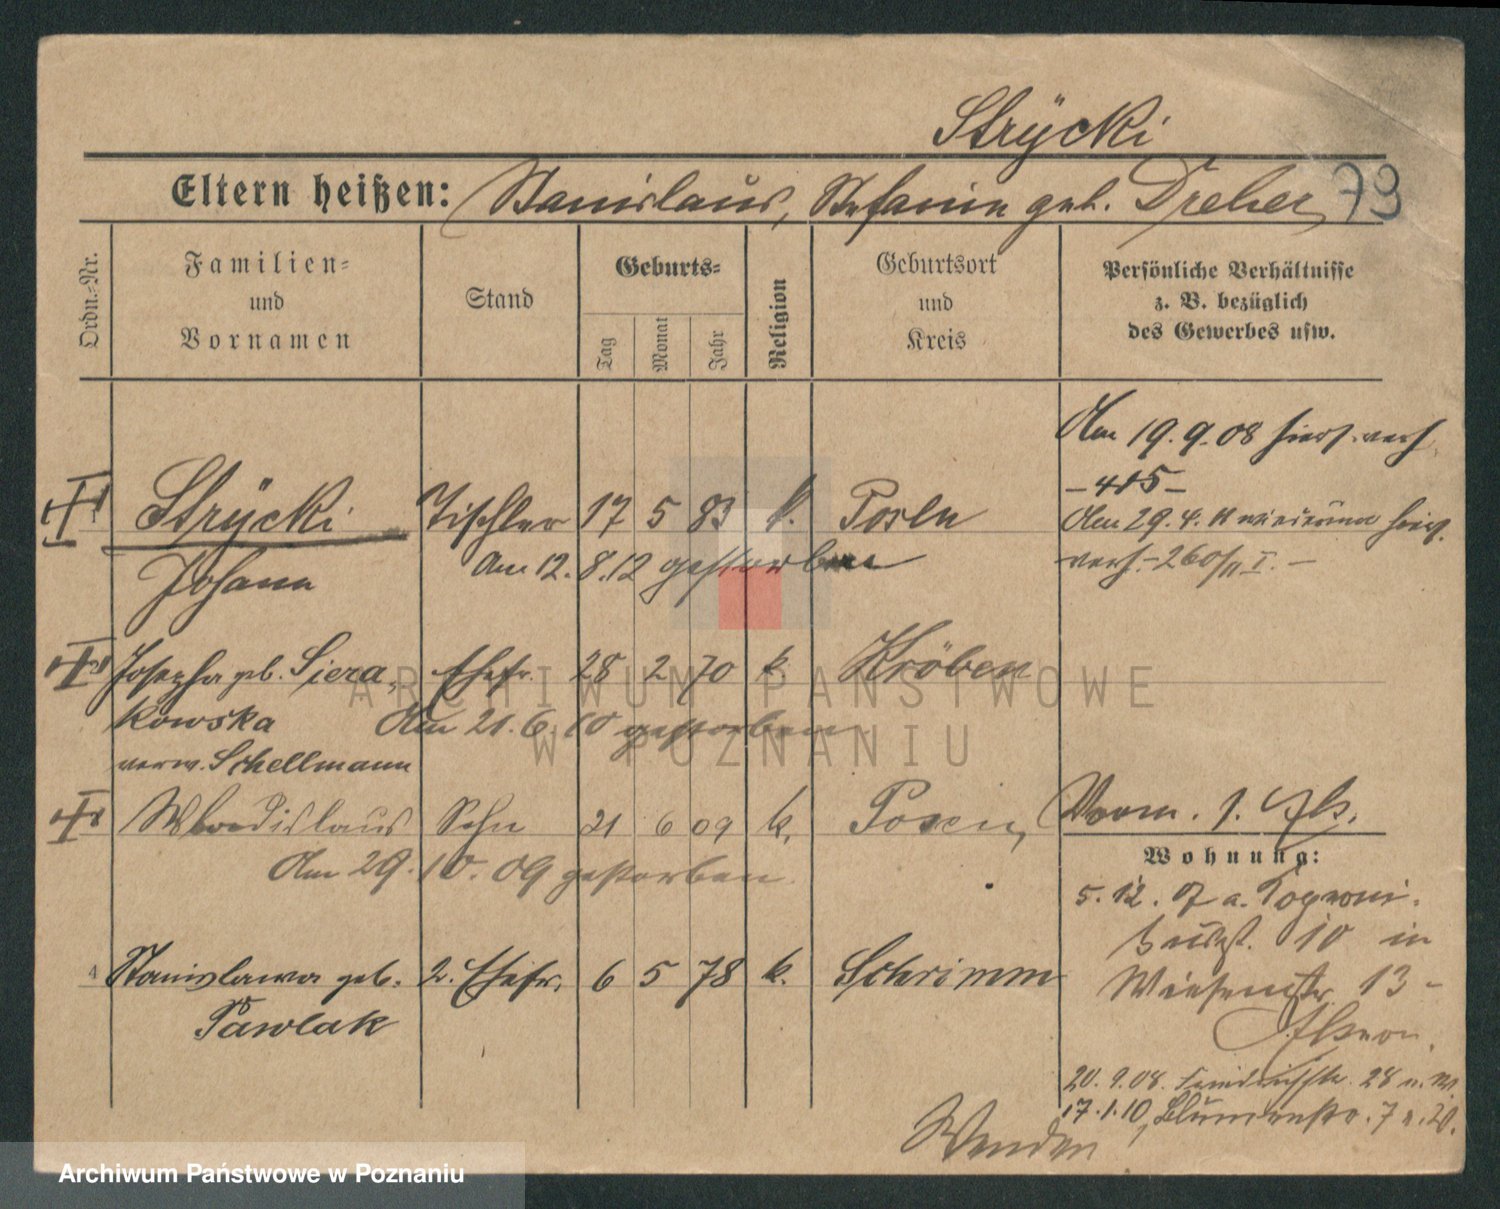 Strÿcki
Eltern heißen: Stanislaus, Stefanie geb. Dreher 79
Ordn.=Nr.
Familien=
und
Vornamen
Stand
Geburts=
Tag
Monat
Jahr
Religion
Geburtsort
und
Kreis
Persönliche Verhältnisse
z. B. bezüglich
des Gewerbes usw.
Am 19.9.08 hier verh.
Strÿcki Tischler 17 5 83 k. Posen
Johann
Am 12.8.12 gestorben
Am 29.4.11 wiederum hier
verh. - 260/11 I. -
Josepha geb. Siera- Ehefr. 28 2 70 k. Kröben
kowska
Am 21.6.10 gestorben
verw. Schellmann
Wladislaus Sohn 21 6 09 k. Posen,
Am 29.10.09 gestorben.
Vorm. 1.
Wohnung:
5.12.07 a.
10 in
Wiesenstr. 13 -
4 Stanislawa geb. 2. Ehefr. 6 5 78 k. Schrimm
Pawlak
20.9.08. Friedrichstr. 28
17.1.10, Blumenstr. 7
Wenden
ARCHIWUM PAŃSTWOWE
W POZNANIU
Archiwum Państwowe w Poznaniu